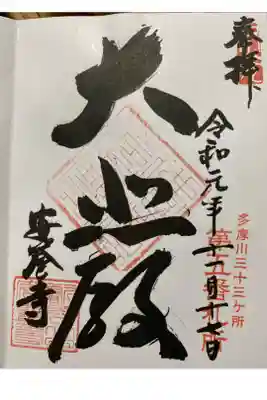 奉拝
令和元年十一月
多摩川三十三ヶ所
番札所
大悲殿
安養寺